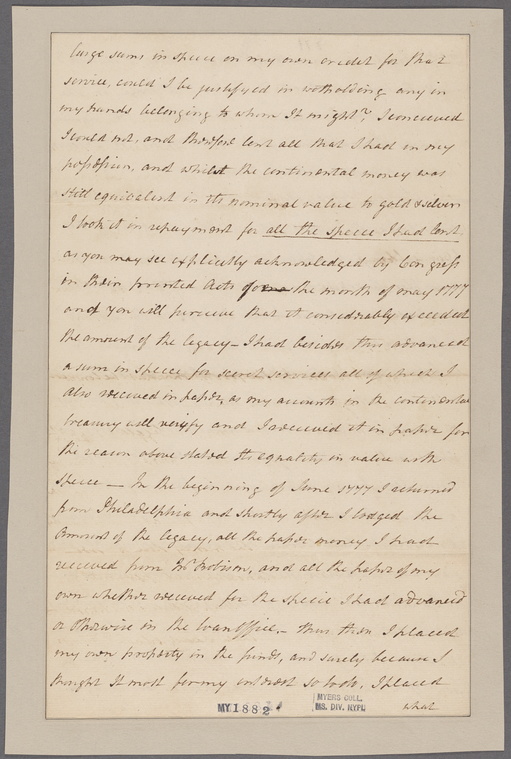 large sums in specie on my own credit for that
service, could I be justifyed in witholding any in
my hands belonging to whom It might? I conceived
I could not, and therefore lent all that I had in my
possession, and whilst the continental money was
still equivalent in its nominal value to gold & silver
I took it in repayment for all the specie I had lent
as you may see explicitly acknowledged by Congress
in their printed Acts for the month of may 1777
and you will perceive that it considerably exceeded
the amount of the legacy – I had besides this advanced
a sum in specie for secret services all of which I
also received in paper, as my accounts in the continental
treasury will verify and I received it in paper for
the reason above stated Its equality in value with
specie — In the beginning of June 1777 I returned
from Philadelphia and shortly after I lodged the
Amount of the legacy, all the paper money I had
received from Mr Robison, and all the paper of my
own whether received for the specie I had advanced
or otherwise in the Loan Office, – thus then I placed
my own property in the funds, and surely because I
thought It most for my interest so to do, I placed
what
MY 1882
MYERS COLL.
MS. DIV. NYPL